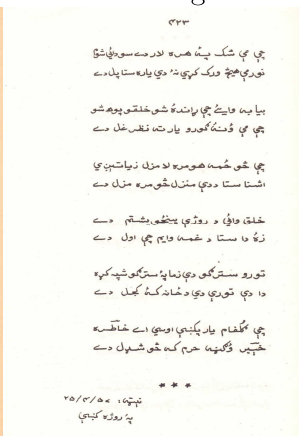 ۴۲۳
چې مې شک پهٔ هره لار دے سودائي شوٚا
نور مې هېڅ ورک کړي نهٔ دي ياره ستا پل دے
بيا به وائے چې ړاندهٔ شو خلقو پوهـ شو
چې مې وٚنهٔ ګورو يار ته نظر غل دے
چې څو ځمه هومره لا مزل زياتېږي
اشنا ستا د دې منزل څومره مزل دے
خلق وائي د روژې پنځويشتم دے
زهٔ دا ستا د غمه وايم چې اول دے
تورو سترګو دې زما پهٔ سترګو شپه کړه
دا دې تورې دي د ځانه کهٔ کجل دے
چې ګلفام يار پکښې اوسي اے خاطره
خېر وٚګڼه حرم که څو شپل دے
* * *
نېټه: ۲۵/۴/۵۷
پهٔ روژه کښې